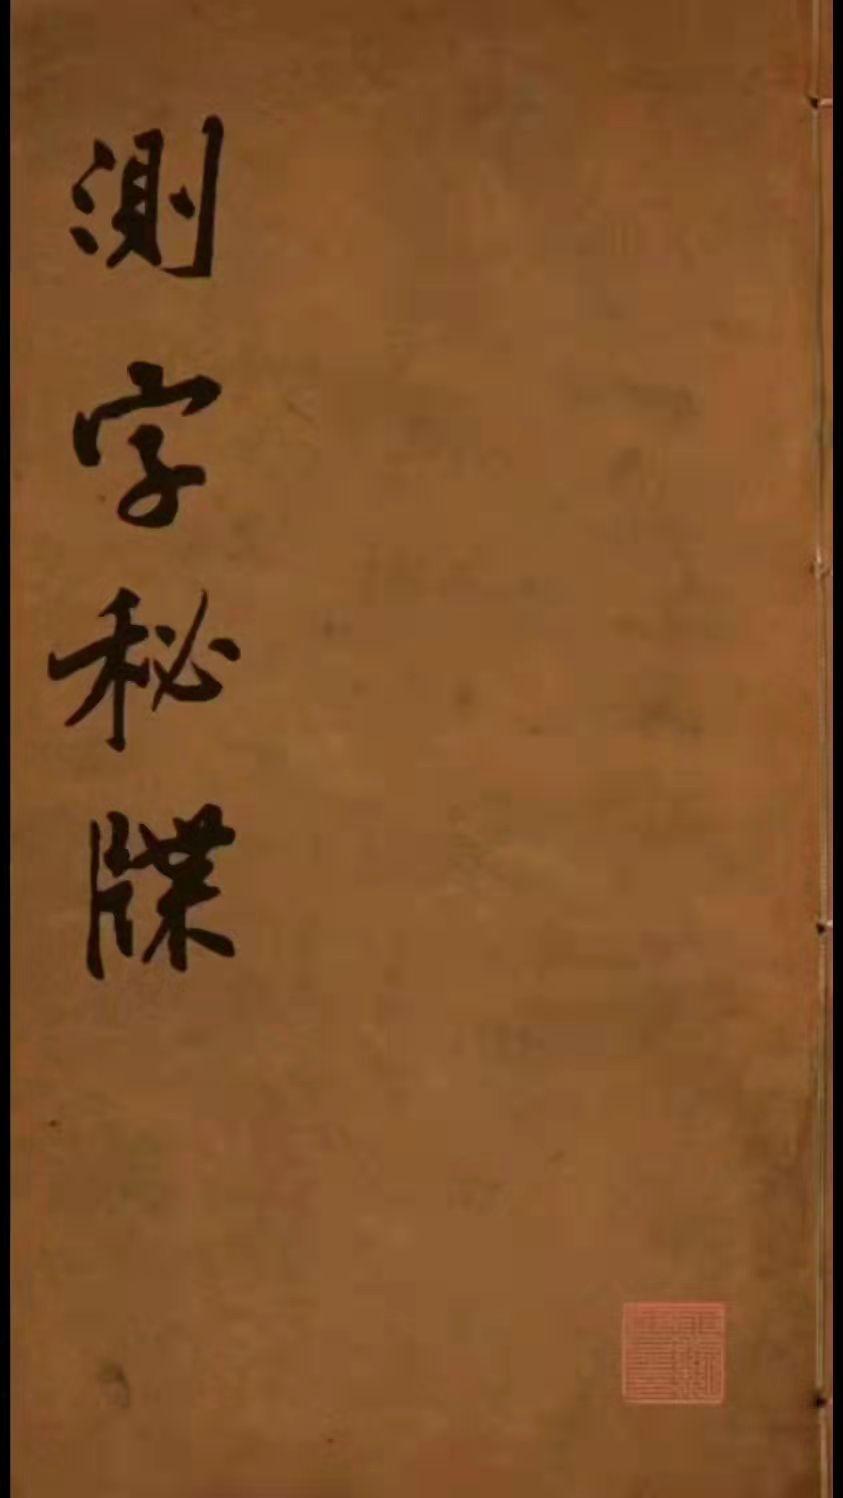 測字秘牒